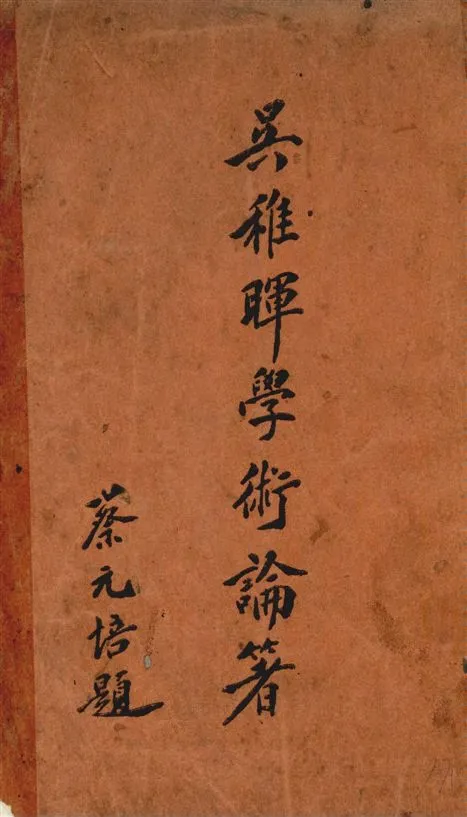 吳稚暉學術論箸
蔡元培題